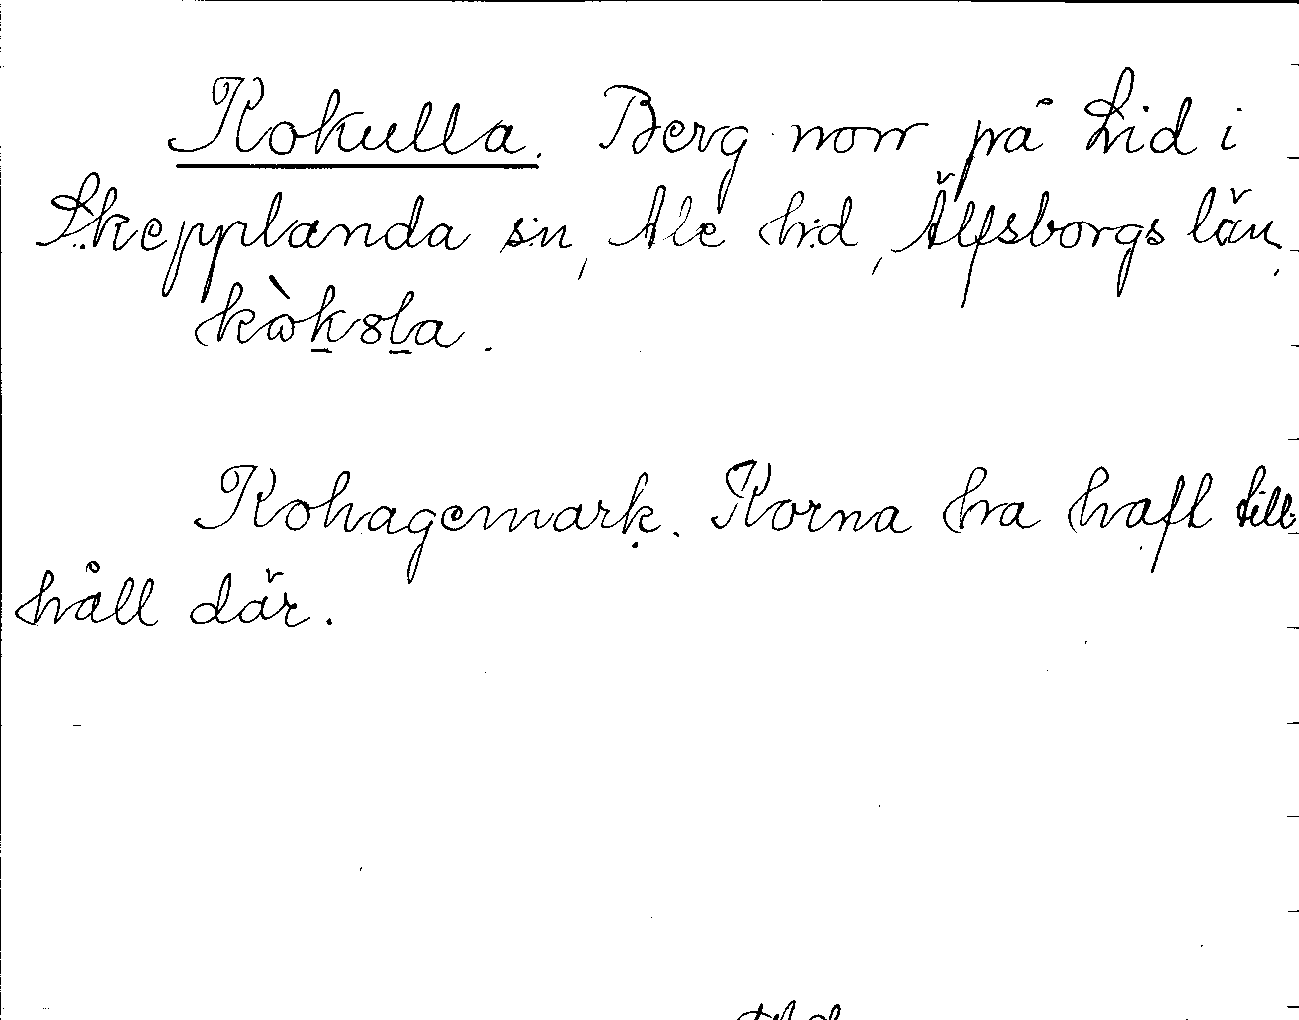 Kokulla. Berg norr på Lid i
Skepplanda sn, Ale hd, Älfsborgs län.
Kohagemark. Korna ha haft till-
håll där.